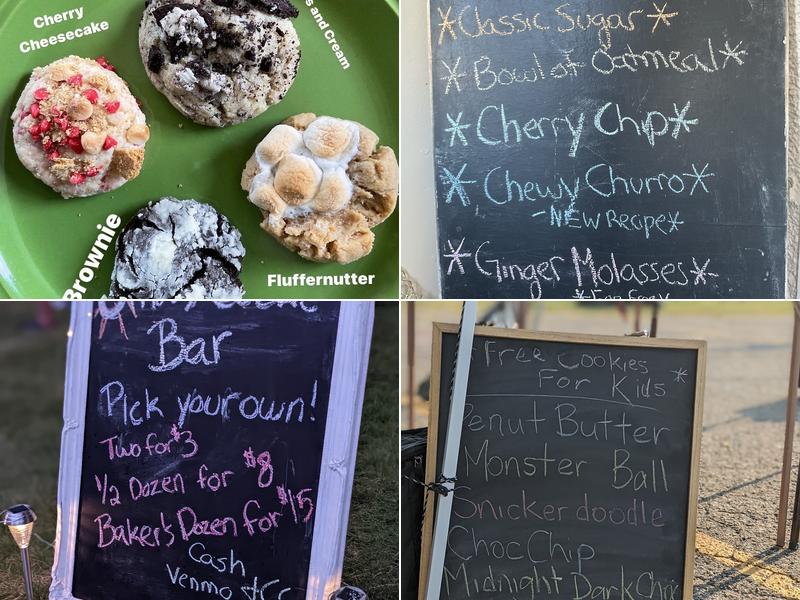 Cherry
Cheesecake
and Cream
Brownie
Fluffernutter
*Classic Sugar*
*Bowl of Oatmeal*
*Cherry Chip*
*Chewy Churro*
-NEW Recipe*
*Ginger Molasses*
Bar
Pick your own!
Two for $3
1/2 Dozen for $8
Baker's Dozen for $15
Cash
Venmo
Free Cookies
For Kids *
Penut Butter
Monster Ball
Snickerdoodle
Choc Chip
Midnight Dark Choc